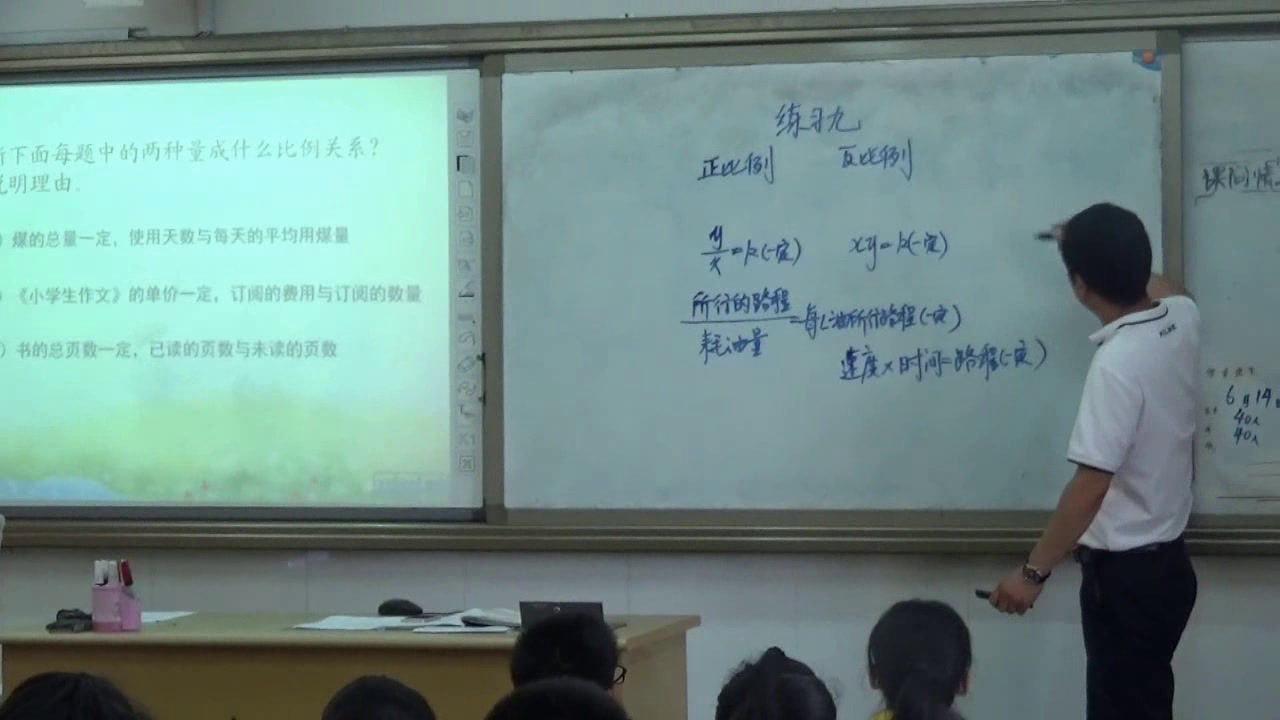 下面每题中的两种量成什么比例关系？
说明理由.
）煤的总量一定，使用天数与每天的平均用煤量
）《小学生作文》的单价一定，订阅的费用与订阅的数量
）书的总页数一定，已读的页数与未读的页数
练习九
正比例 反比例
y/x=k(一定) xy=k(一定)
所行的路程/耗油量=每L油所行路程(一定)
速度×时间=路程(一定)
课间情
6月14
40人
40人